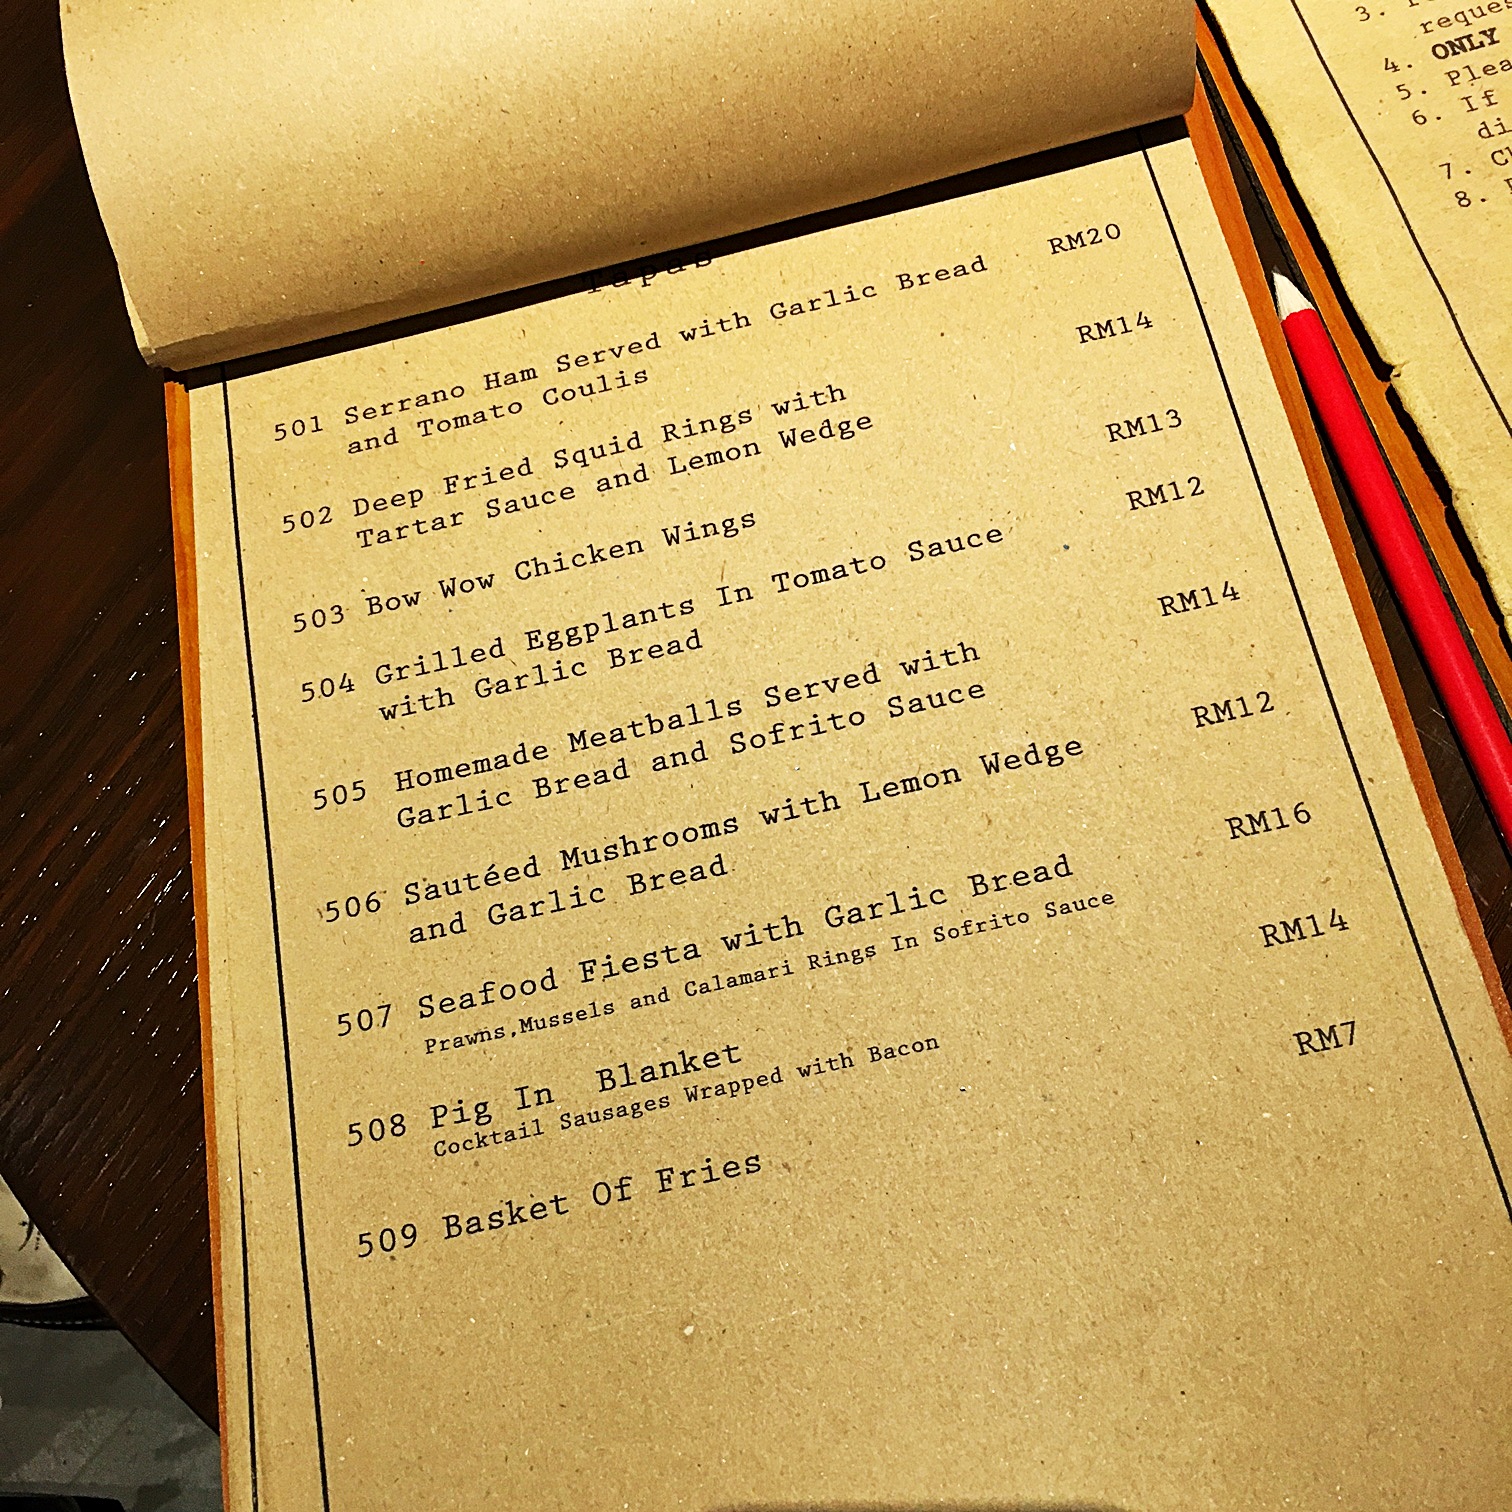 Tapas
501 Serrano Ham Served with Garlic Bread RM20
and Tomato Coulis
502 Deep Fried Squid Rings with RM14
Tartar Sauce and Lemon Wedge
503 Bow Wow Chicken Wings RM13
504 Grilled Eggplants In Tomato Sauce RM12
with Garlic Bread
505 Homemade Meatballs Served with RM14
Garlic Bread and Sofrito Sauce
506 Sautéed Mushrooms with Lemon Wedge RM12
and Garlic Bread
507 Seafood Fiesta with Garlic Bread RM16
Prawns,Mussels and Calamari Rings In Sofrito Sauce
508 Pig In Blanket RM14
Cocktail Sausages Wrapped with Bacon
509 Basket Of Fries RM7
3.
4. ONLY
5.
6. If
7.
8.